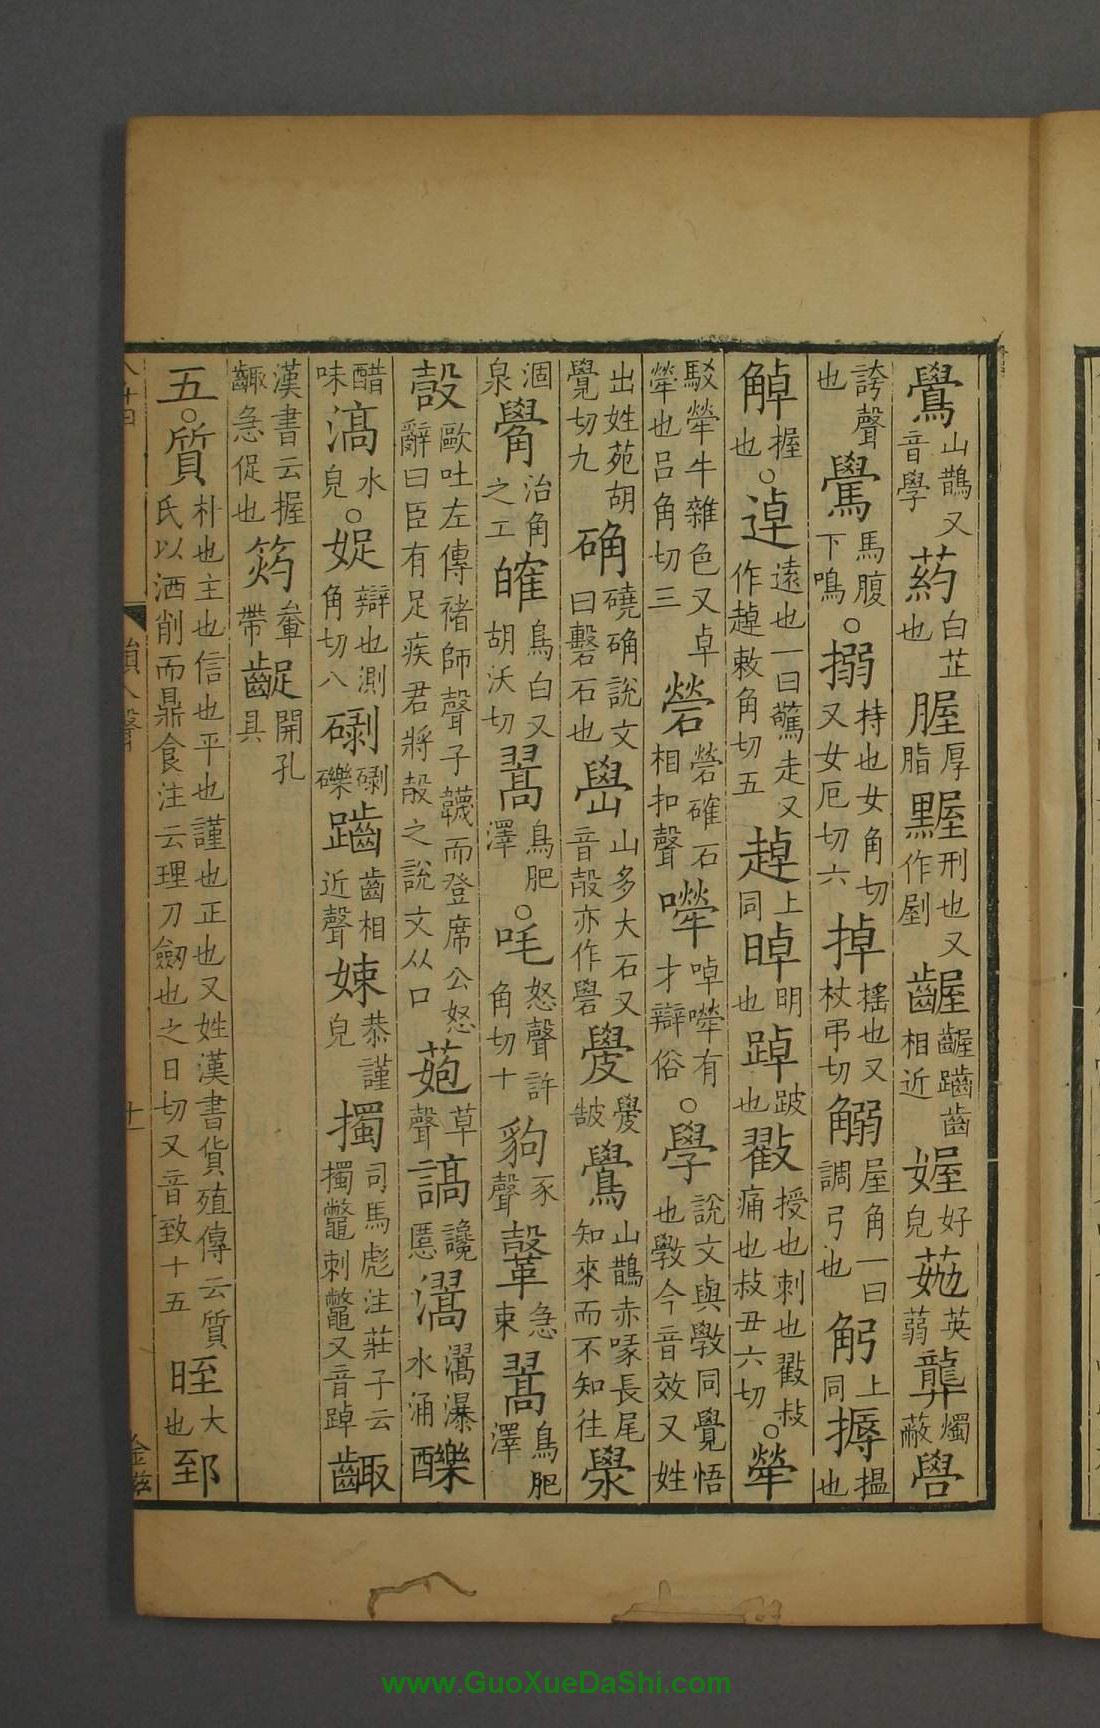 鷽山鵲又音學葯白芷也腛厚脂䵥刑也又作剭齷齷齪齒相近媉好皃䓤英蒻䶯燭蔽嚳
誇聲也鷽馬腹下鳴○搦持也女角切又女厄切六掉搖也又杖弔切䚥屋角一曰調弓也䚧上同搙搵也
䚄握也○逴遠也一曰驚走又作趠敕角切五趠上同晫明也踔跛也㪬授也刺也㪬敊痛也敊丑六切○犖
駁犖牛雜色又卓犖也呂角切三礐礐確石相扣聲嚛啅犖有才辯俗○學說文與斆同覺悟也斆今音效又姓
出姓苑胡覺切九确磽确說文曰磬石也嶨山多大石又音㱿亦作礐觷觷鷽山鵲赤喙長尾知來而不知往澩
涸泉觷治角之工㿥鳥白又胡沃切翯鳥肥澤○吒怒聲許角切十豿豕聲㲄急束翯鳥肥澤
㱿歐吐左傳褚師聲子韈而登席公怒辭曰臣有足疾君將㱿之說文从口䓤草聲謞讒慝㶅㶅瀑水涌𨣵
醋味滈水皃○娖辯也測角切八㓸㓸礫齪齒相近聲娕恭謹皃擉司馬彪注莊子云擉鼈刺鼈又音踔齱
漢書云握齱急促也䈣䡣帶齪開孔具
五○質朴也主也信也平也謹也正也又姓漢書貨殖傳云質氏以洒削而鼎食注云理刀劒也之日切又音致十五晊大也郅
www.GuoXueDaShi.com